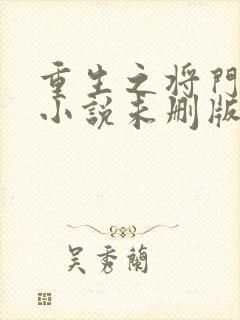 重生之将門
小説未删版
吴秀蘭